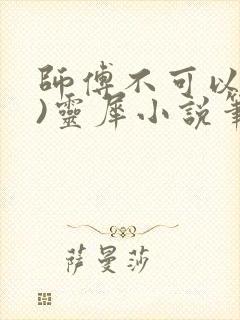 師傅不可以
)靈犀小說筆
萨曼莎